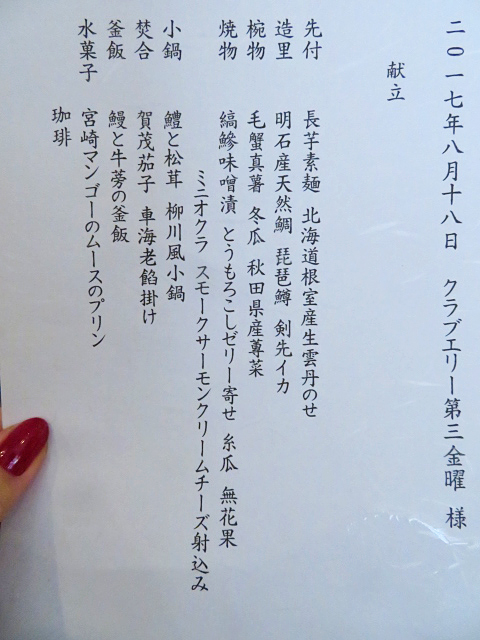 二〇一七年八月十八日　クラブエリー第三金曜　様
献立
先付　長芋素麺　北海道根室産生雲丹のせ
造里　明石産天然鯛　琵琶鱒　剣先イカ
椀物　毛蟹真薯　冬瓜　秋田県産蓴菜
焼物　縞鯵味噌漬　とうもろこしゼリー寄せ　糸瓜　無花果
ミニオクラ　スモークサーモンクリームチーズ射込み
小鍋　鱧と松茸　柳川風小鍋
焚合　賀茂茄子　車海老餡掛け
釜飯　鰻と牛蒡の釜飯
水菓子　宮崎マンゴーのムースのプリン
珈琲